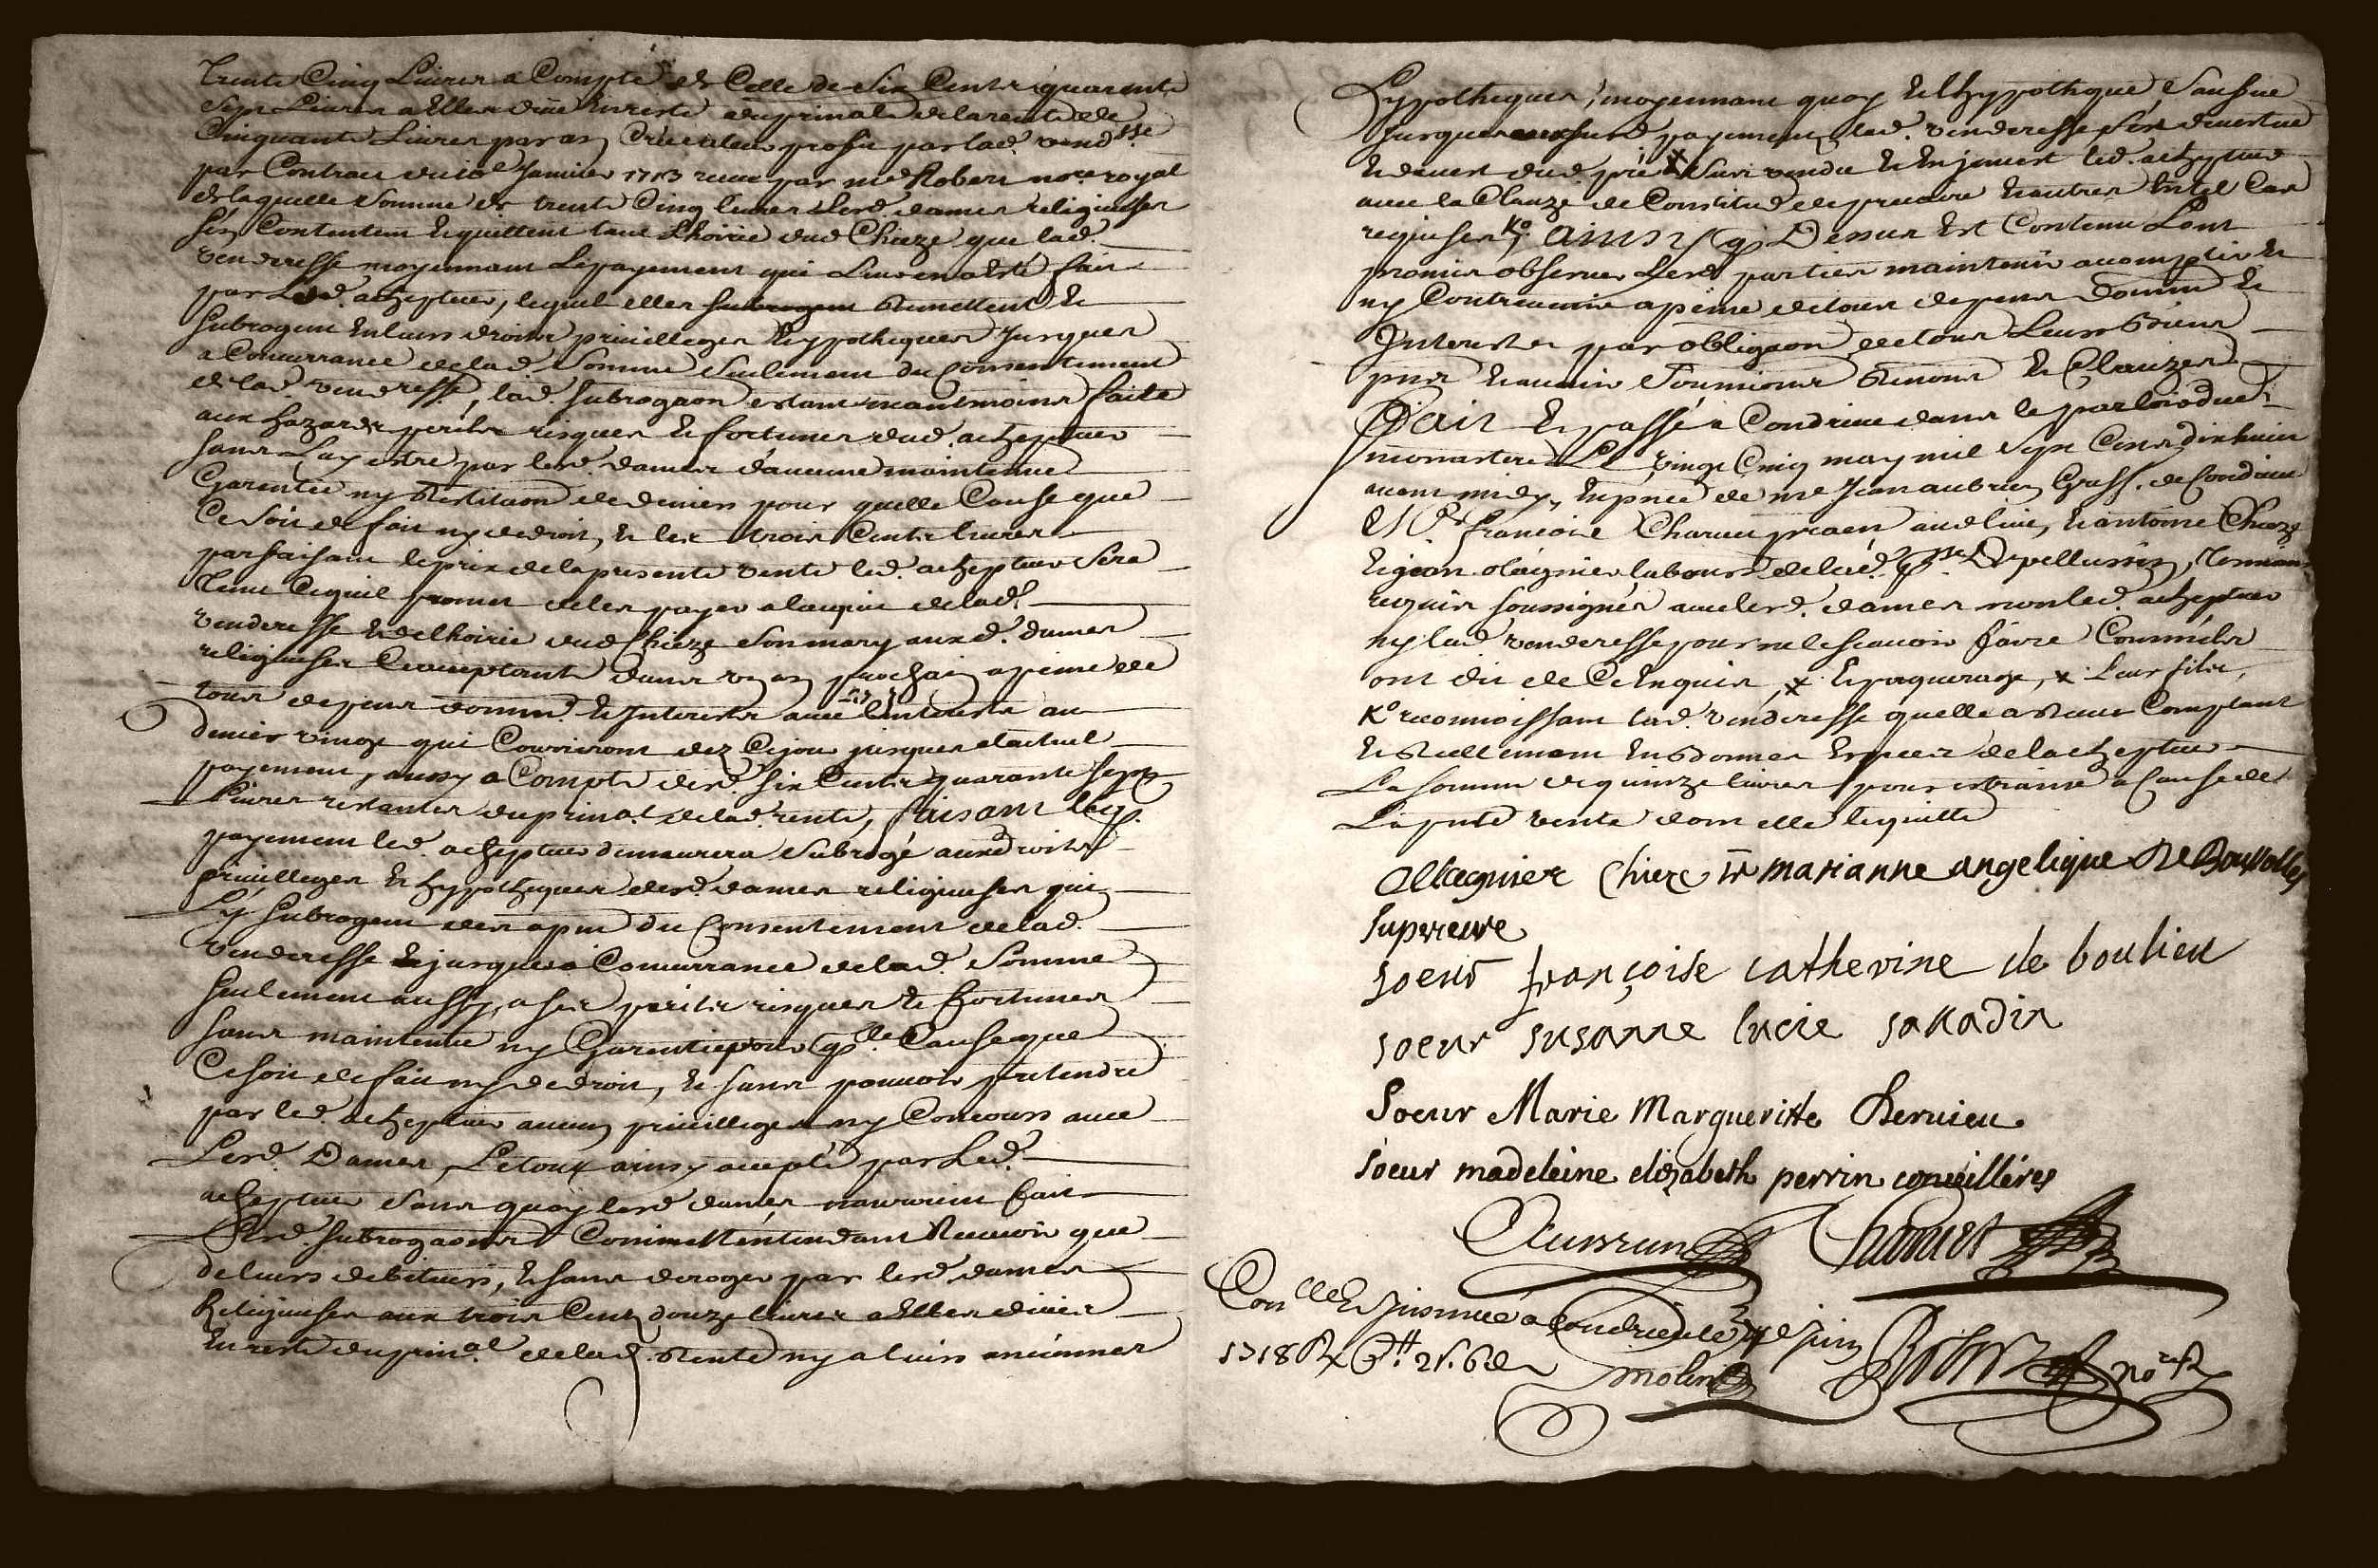 trente Cinq Livres a Compte de Celle de Six Cents quarante
sept Livres a Elles düe En reste du prinal de la rente de
Cinquante Livres par an Créée au proffit par lad. vendsse
par Contrat du 10e Janvier 1713 receu par me Robert nore royal
de laquelle Somme de trente Cinq livres Lesd. dames religieuses
sen Contentent & quittent tant Lhoirie dud Chieze que lad.
venderesse moyennant Le payement qui Leur en a Esté fait
par Led. achepteur, lequel elles subrogent & mettent &
Subrogent En leurs droits privilleges & hypotheques Jusques
a Concurrance de lad. Somme Seulement du Consentement
de lad. venderesse, lad. Subrogaon estant neantmoins faite
aux hazards perils risques & fortunes dud. achepteur
sans Luy estre par lesd. dames d'aucune maintenue
Garentie ny Restitaon de deniers pour quelle Cause que
Ce Soit de fait ny de droit, & les trois Cents livres
parfaisant le prix de la presente vente led. achepteur Sera
tenu Ce quil promet de les payer a lacquit de lad.
venderesse & de lhoirie dud Chieze Son mary auxd. dames
religieuses Ce acceptants dans un an prochain a peine de
tous depens domm. & Interests avec linterest au
denier vingt qui Courriront dez Ce jour jusques a lactuel
payement, aussy a Compte desd. Six Cents quarante sept
Livres restantes du prinal. de lad. rente, faisant leq.
payement led. achepteur demeurera Subrogé auxd droits
privilleges & hyppotheques desd. dames religieuses qui
Ly Subrogent des apnt du Consentement de lad.
venderesse & jusques a Concurrance de lad. Somme
seulement aussy, a ses perils risques & fortunes
sans maintenue ny Garentie pour qlle. Cause que
Ce soit de fait ny de droit, & sans pouvoir pretendre
par led. achepteur aucun privillege ny Concours avec
Lesd. Dames, Le tout ainsy accepté par Led.
achepteur Sans quoy lesd dames nauroient fait
Lesd. subrogaons Comme Nentendant Recevoir que
de leurs debiteurs, & sans deroger par lesd dames
Religieuses aux trois Cents douze livres a Elles düés
En reste du prinal. de lad. Rente ny a leurs anciennes
hypotheques, moyennant quoy & lhyppotheque Sansine
Jusques aud payement, lad. venderesse Sest devestue
& devest dud. pré x Sus vendu & En investi led. achepteur
avec la Clauze de Constitut de precaire & autres En tel Cas
requises Ko, ainsy q Dessus Est Contenu Lont
promis observer Lesd parties maintenir accomplir &
ny Contrevenir a peine de tous depens domm &
Interests par obligaon de tous Leurs Biens
pnts & avenir Soumions & renons & Clauzes
Fait & passé a Condrieu dans le parloir dud.
monastere Le vingt Cinq may mil Sept Cents dix huit
avant midy, En pnce de me Jean aubrun Greff. de Condrieu
& Sr. françois Charvet praen aud lieu, & antoine Chieze
& jean olagnier labours de lad. psse De pellussin, temoins
requis soussignés avec lesd. dames non led. achepteur
ny lad venderesse pour ne le scavoir faire Comme ils
ont dit de Ce Enquis, x & paquerage, x Leur fils,
Ko reconnoissant lad. venderesse quelle a Receu Comptant
& Reellement En Bonnes Especes de lachepteur
La somme de quinze livres pour estraine a Cause de
La pnte vente dont elle le quitte
ollagnier Chieze sr marianne angelique De Boissolles
superieure
soeur françoise catherine de boulieu
soeur susanne lucie
soeur Marie Margueritte Dervieu
soeur madeleine elizabeth perrin conseilleres
Aubrun Charvet
Conllé & Insinué a Condrieu le 7e juin
1718 Rx 3lt 2s. 6d
molin Robert nore R